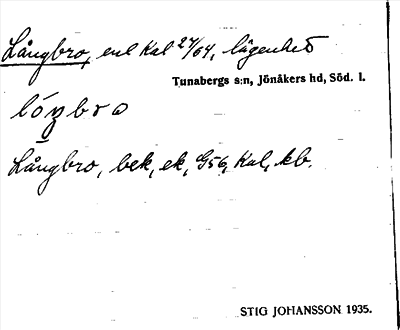 Långbro, enl Kal 27/64, lägenhet
Tunabergs s:n, Jönåkers hd, Söd. l.
lóŋbro
Långbro, bek, ek, G56, Kal, kb.
STIG JOHANSSON 1935.